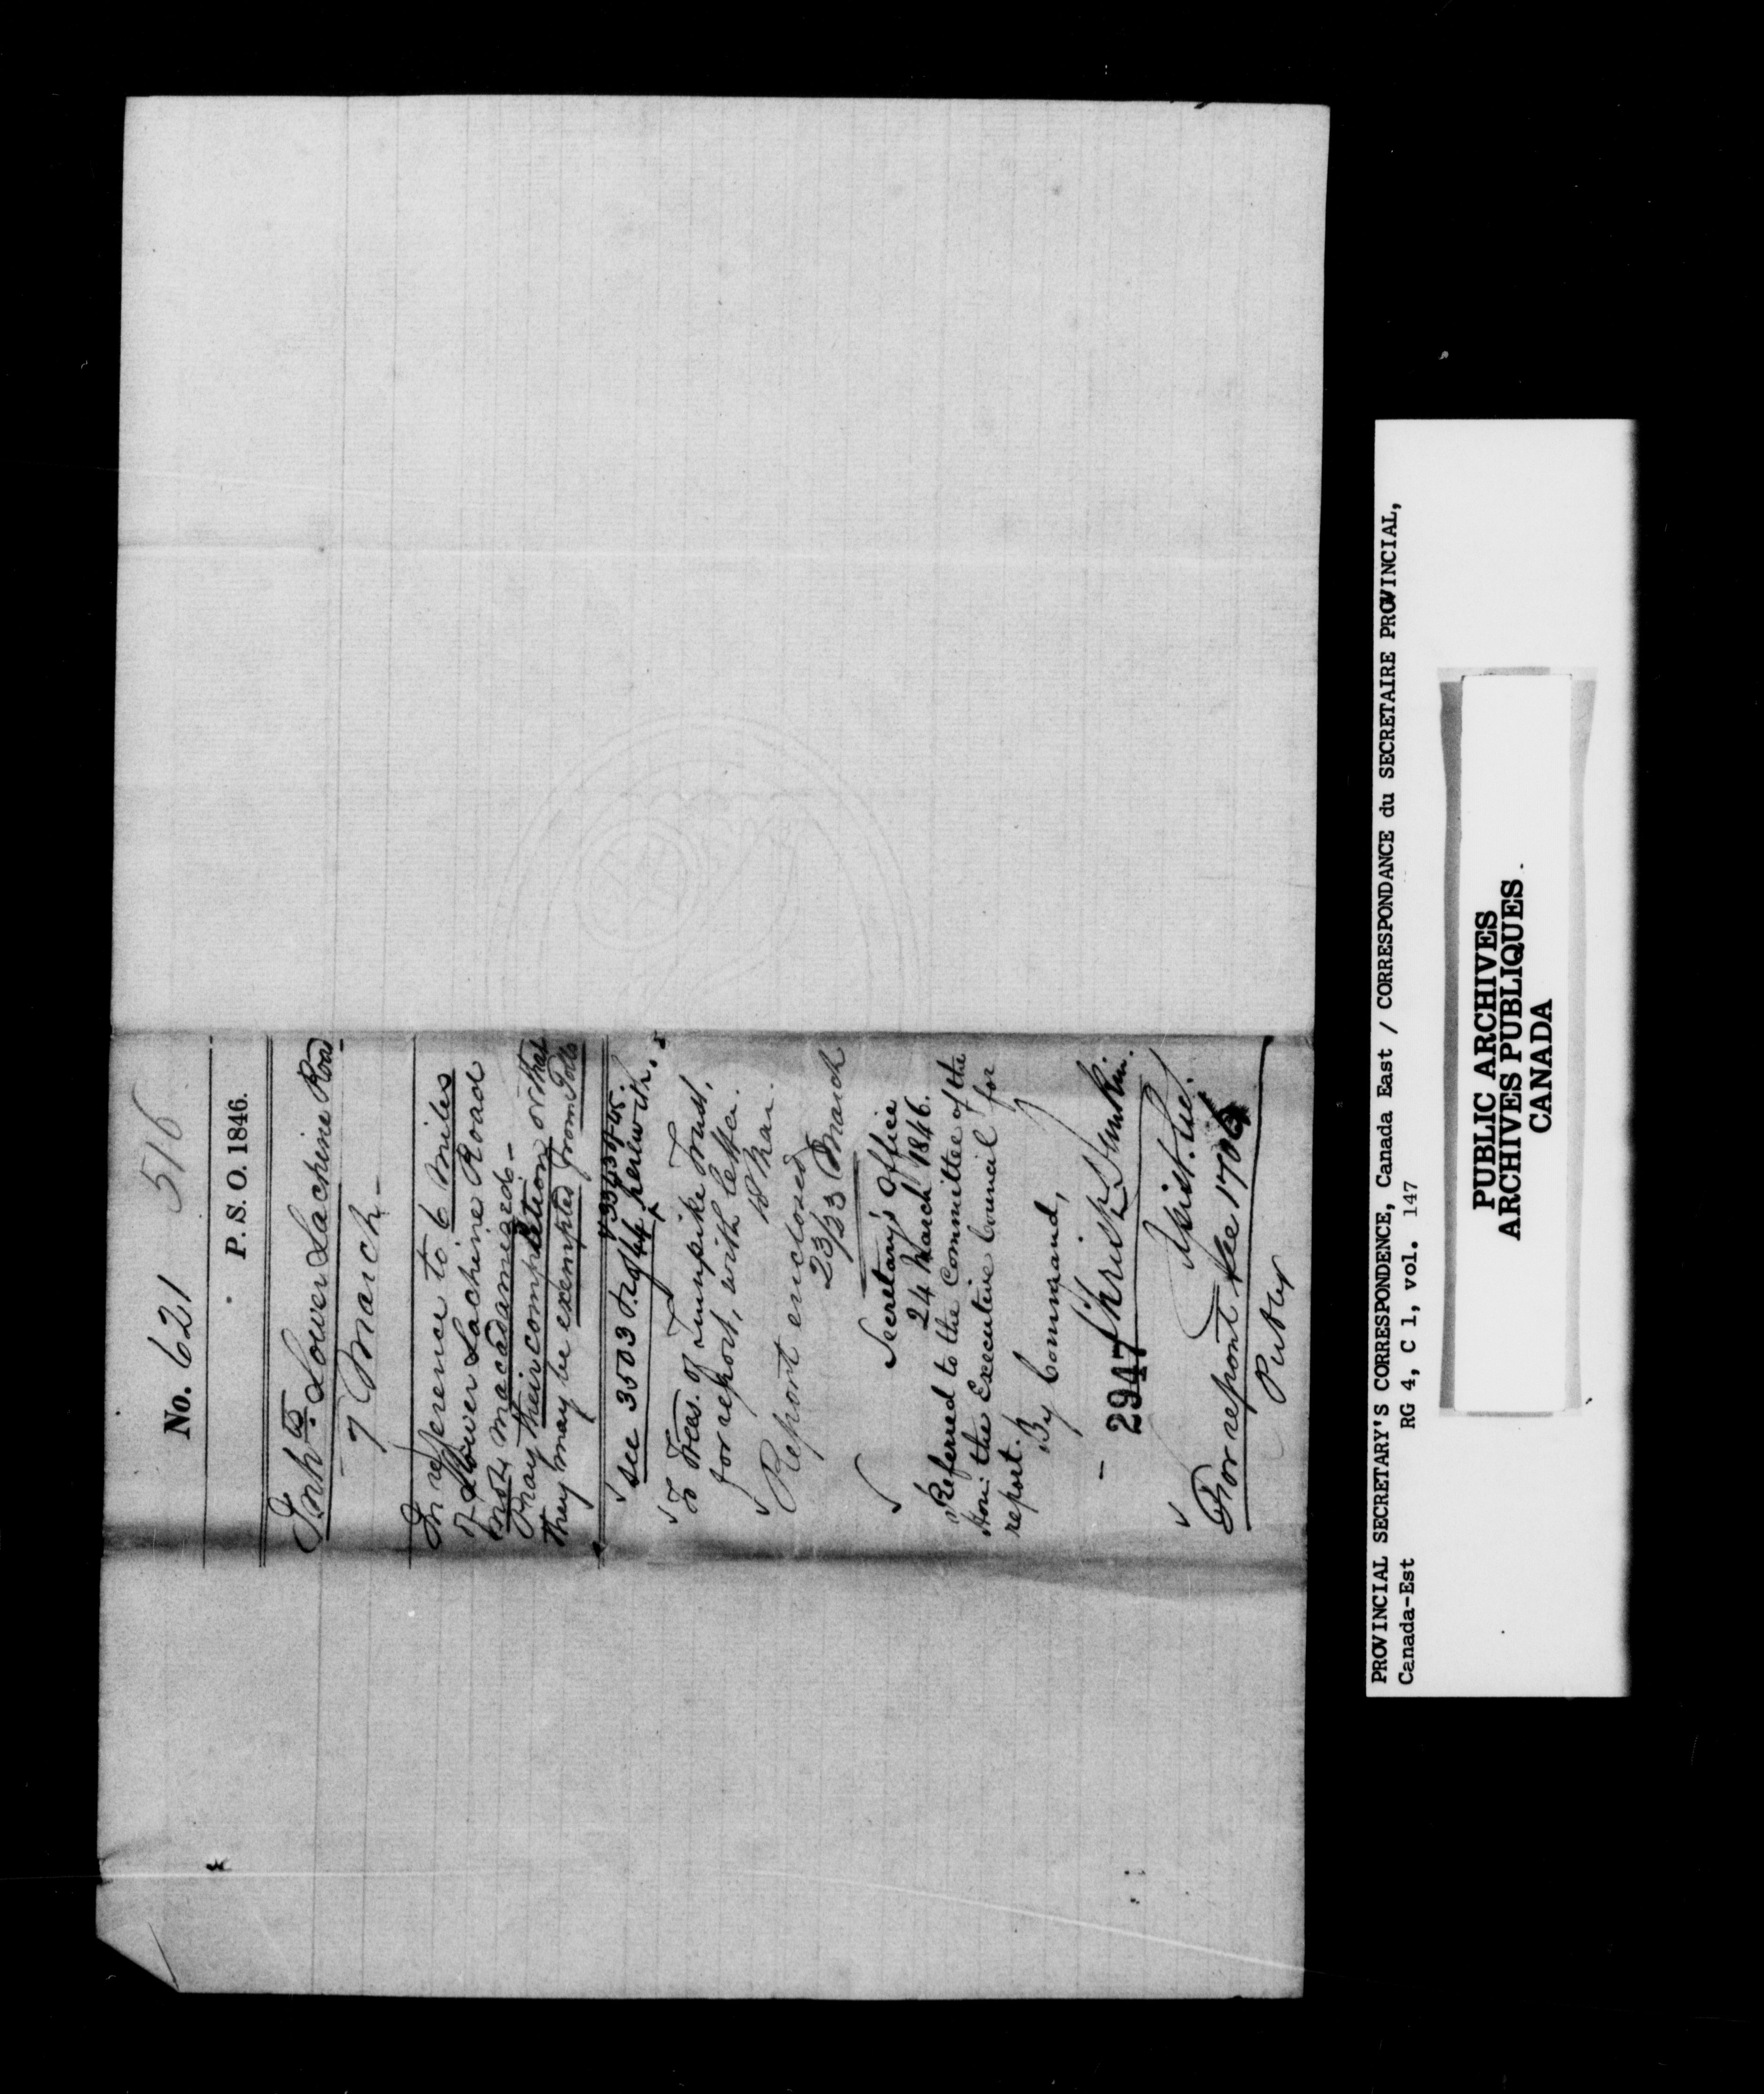 516
No. 621
P. S. O. 1846.
Inhts. Lower Lachine Road
7 March -
In reference to 6 Miles
of Lower Lachine Road
not macadamized -
Pray their completion or that
they may be exempted from Tolls
see 3503 of 44 herewith.
To Treas. of Turnpike Trust,
for report, with letter.
18 Mar.
Report enclosed
23/23 March
Secretary's Office
24 March 1846.
Referred to the Committee of the
Hon: the Executive Council for
report.
By Command,
2947
Christr Dunkin.
Assist. Sec.
For report see 1706
PROVINCIAL SECRETARY'S CORRESPONDENCE, Canada East / CORRESPONDANCE du SECRETAIRE PROVINCIAL,
Canada-Est RG 4, C 1, vol. 147
PUBLIC ARCHIVES
ARCHIVES PUBLIQUES
CANADA